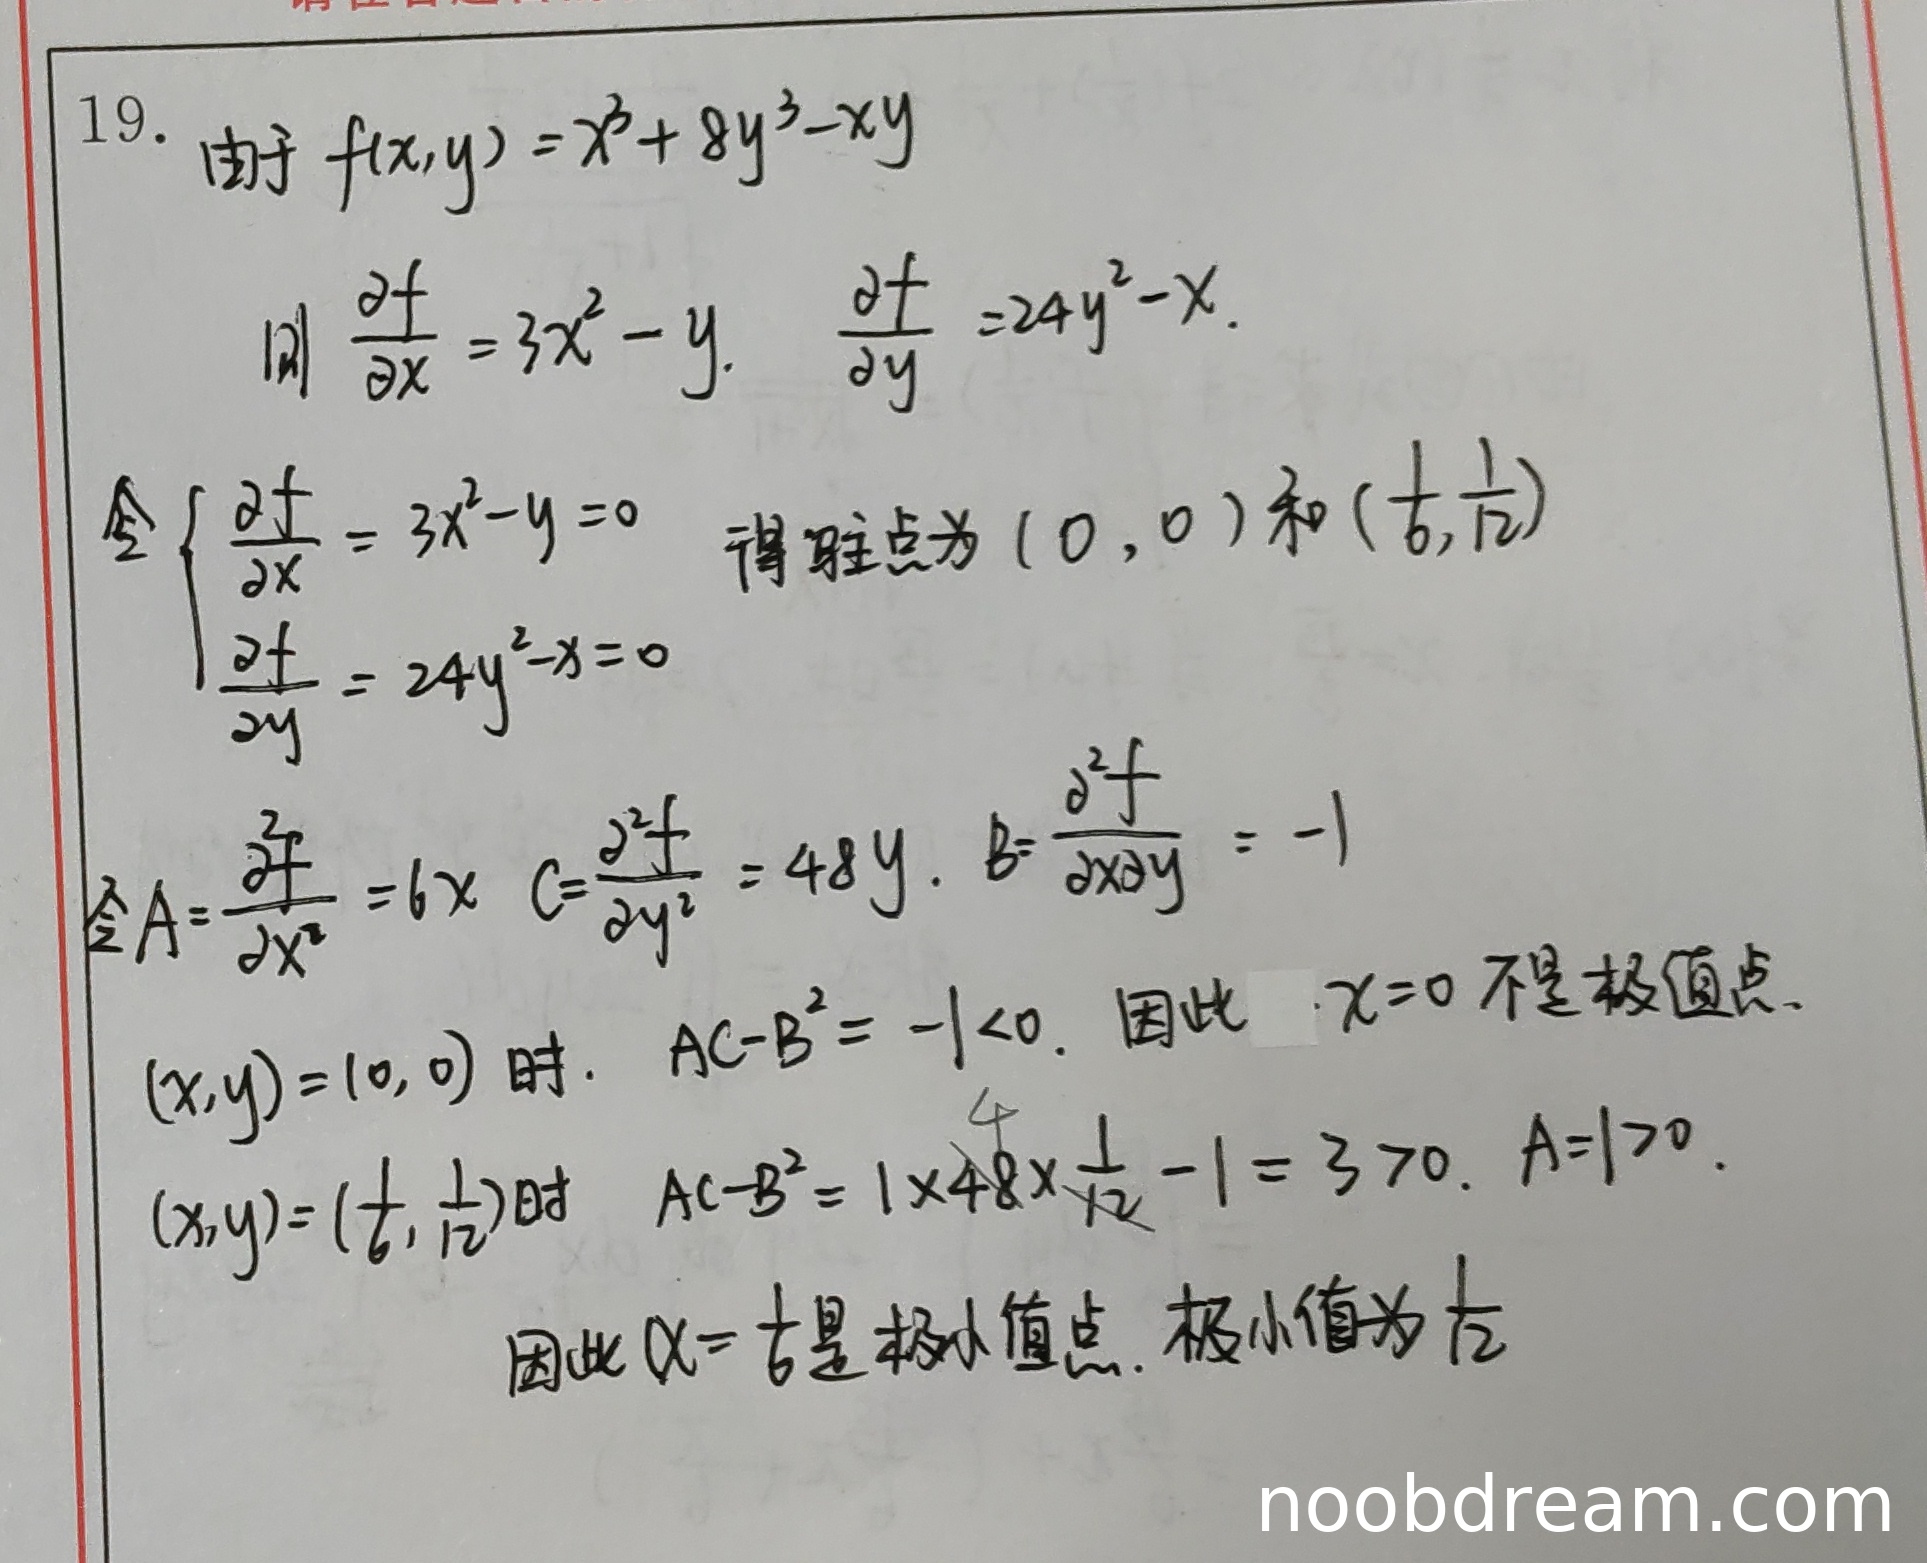 19. 由于 f(x,y) = x³ + 8y³ - xy
则 ∂f/∂x = 3x² - y. ∂f/∂y = 24y² - x.
令 { ∂f/∂x = 3x² - y = 0 得驻点为 (0, 0) 和 (1/6, 1/12)
∂f/∂y = 24y² - x = 0
令 A = ∂²f/∂x² = 6x C = ∂²f/∂y² = 48y. B = ∂²f/∂x∂y = -1
(x,y) = (0,0) 时. AC-B² = -1<0. 因此 x=0 不是极值点.
4
(x,y) = (1/6, 1/12) 时 AC-B² = 1×48×1/12 - 1 = 3 >0. A=1>0.
因此 x = 1/6 是极小值点. 极小值为 1/12
noobdream.com